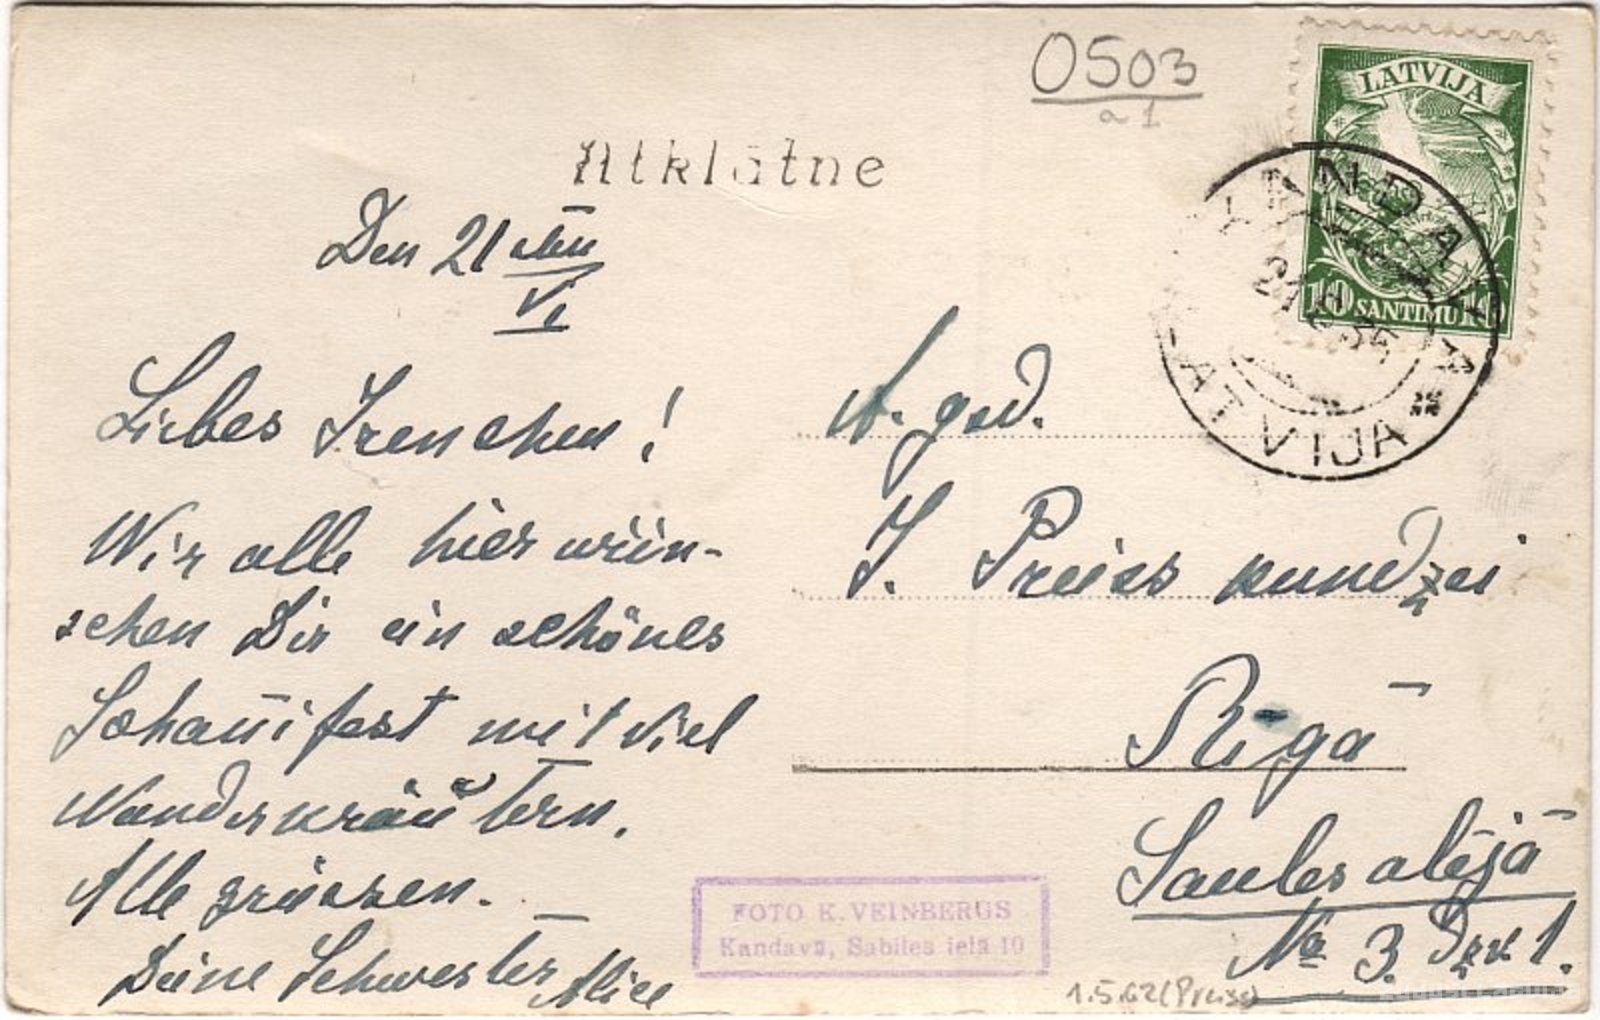 0503
a 1
LATVIJA
10 SANTIMU 10
KANDAVA
LATVIJA
Atklātne
Den 21
VI
Liebes Irenchen!
Wir alle hier wün-
schen Dir ein schönes
Johannifest mit viel
Wunderkräutern.
Alle grüssen.
Deine Schwester Alice
A. god.
J. Preiss kundzei
Rīgā
Saules alejā
No 3. Dzv 1.
FOTO K. VEINBERGS
Kandavā, Sabiles ielā 10
1.5.62 (Preiss)